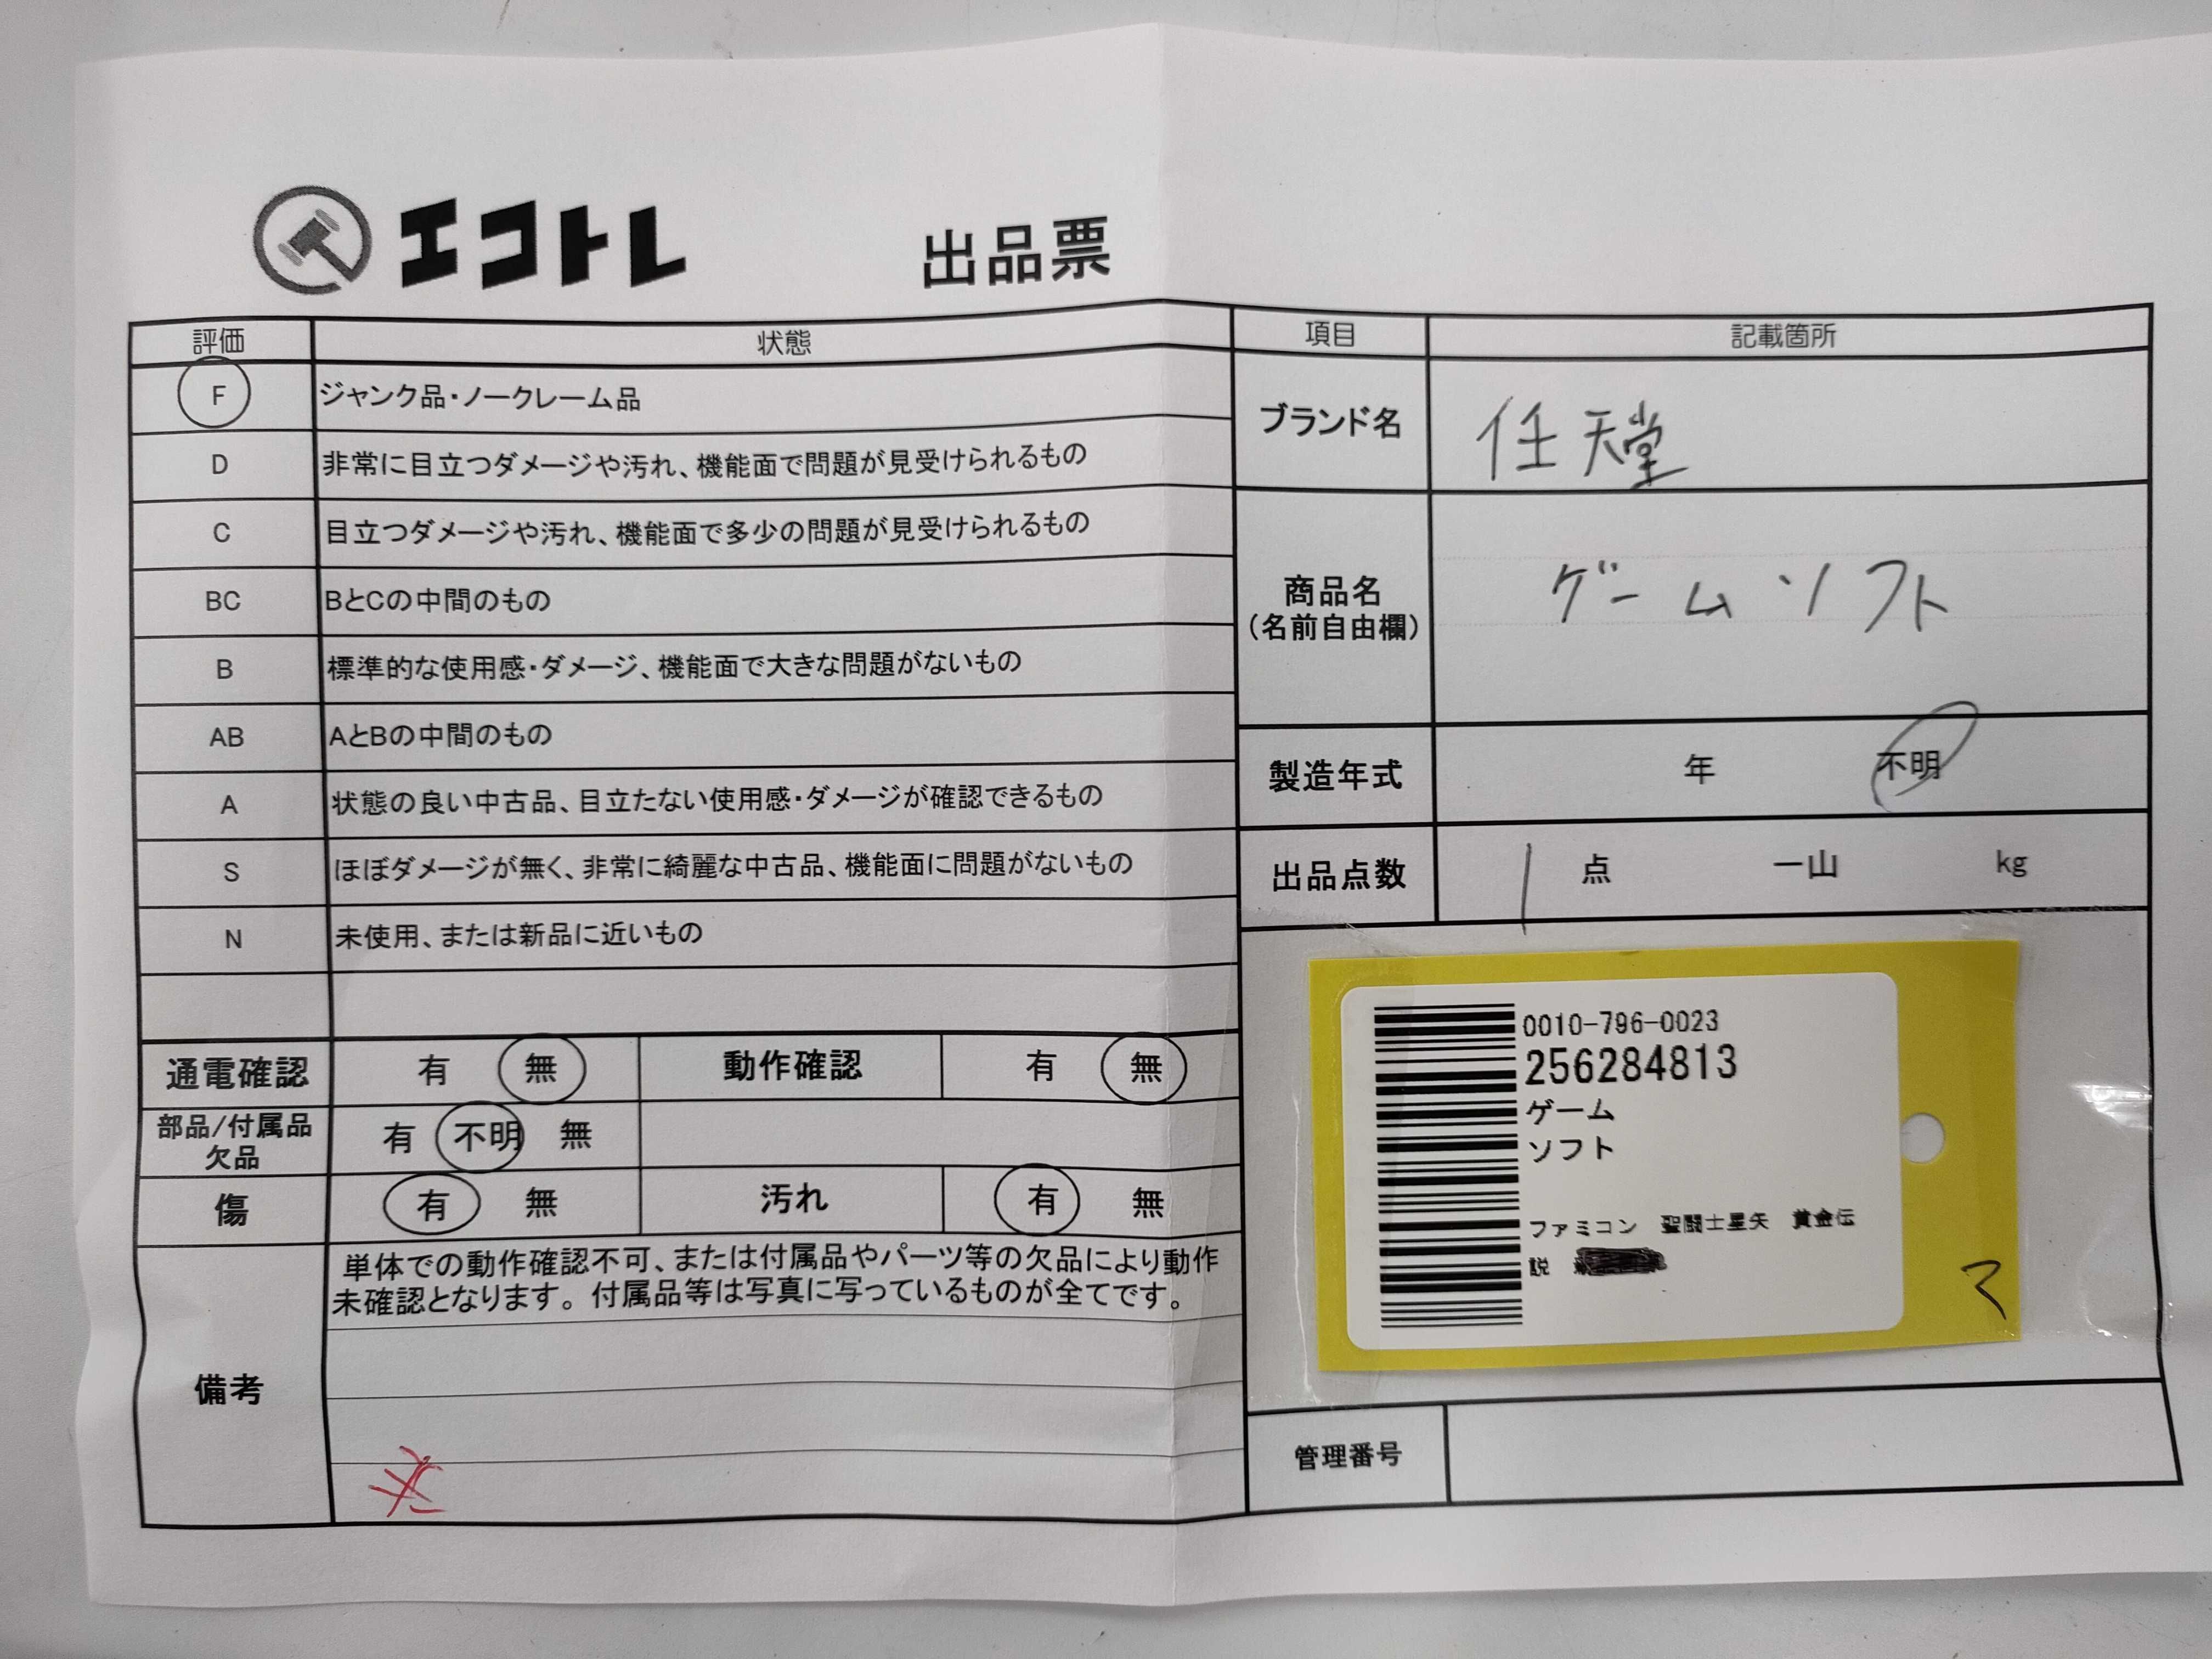 エコトレ
出品票
評価 状態
F ジャンク品・ノークレーム品
D 非常に目立つダメージや汚れ、機能面で問題が見受けられるもの
C 目立つダメージや汚れ、機能面で多少の問題が見受けられるもの
BC BとCの中間のもの
B 標準的な使用感・ダメージ、機能面で大きな問題がないもの
AB AとBの中間のもの
A 状態の良い中古品、目立たない使用感・ダメージが確認できるもの
S ほぼダメージが無く、非常に綺麗な中古品、機能面に問題がないもの
N 未使用、または新品に近いもの
通電確認 有 無 動作確認 有 無
部品/付属品
欠品
有 不明 無
傷 有 無 汚れ 有 無
備考
単体での動作確認不可、または付属品やパーツ等の欠品により動作
未確認となります。付属品等は写真に写っているものが全てです。
項目 記載箇所
ブランド名 任天堂
商品名
(名前自由欄)
ゲームソフト
製造年式 年 不明
出品点数 1 点 一山 kg
0010-796-0023
256284813
ゲーム
ソフト
ファミコン 聖闘士星矢 黄金伝
説
管理番号